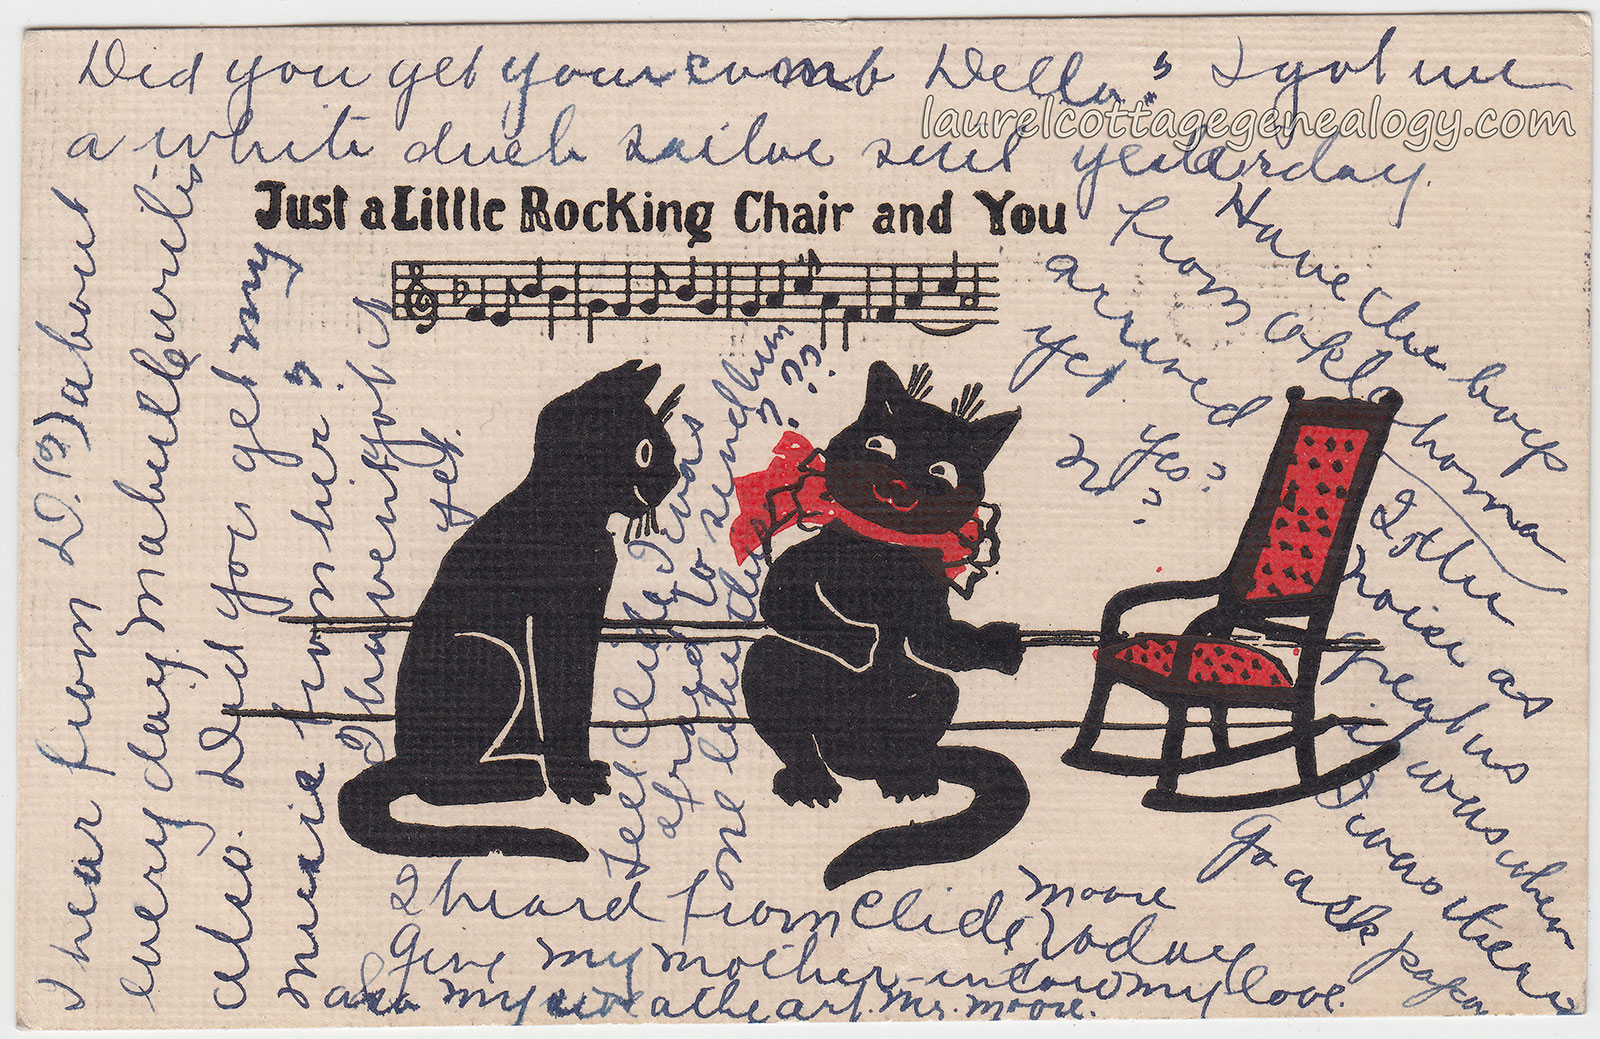 Did you get your comb Della? I got me
a white duck sailor suit yesterday.
laurelcottagegenealogy.com
Just a Little Rocking Chair and You
Have the boys
from Oklahoma
arrived
yet
Yes?
No?
Is the
noise as
great as
it was when
I was there
Go ask papa
I hear from D.B. about
every day. Mabell writes
also. Did you get my
music from her?
I havent got it
yet.
Tell Clide I was
afraid to send him
one letter
I heard from Clide Moore today
Give my mother-in-law my love.
also my sweetheart. Mr. Moore.